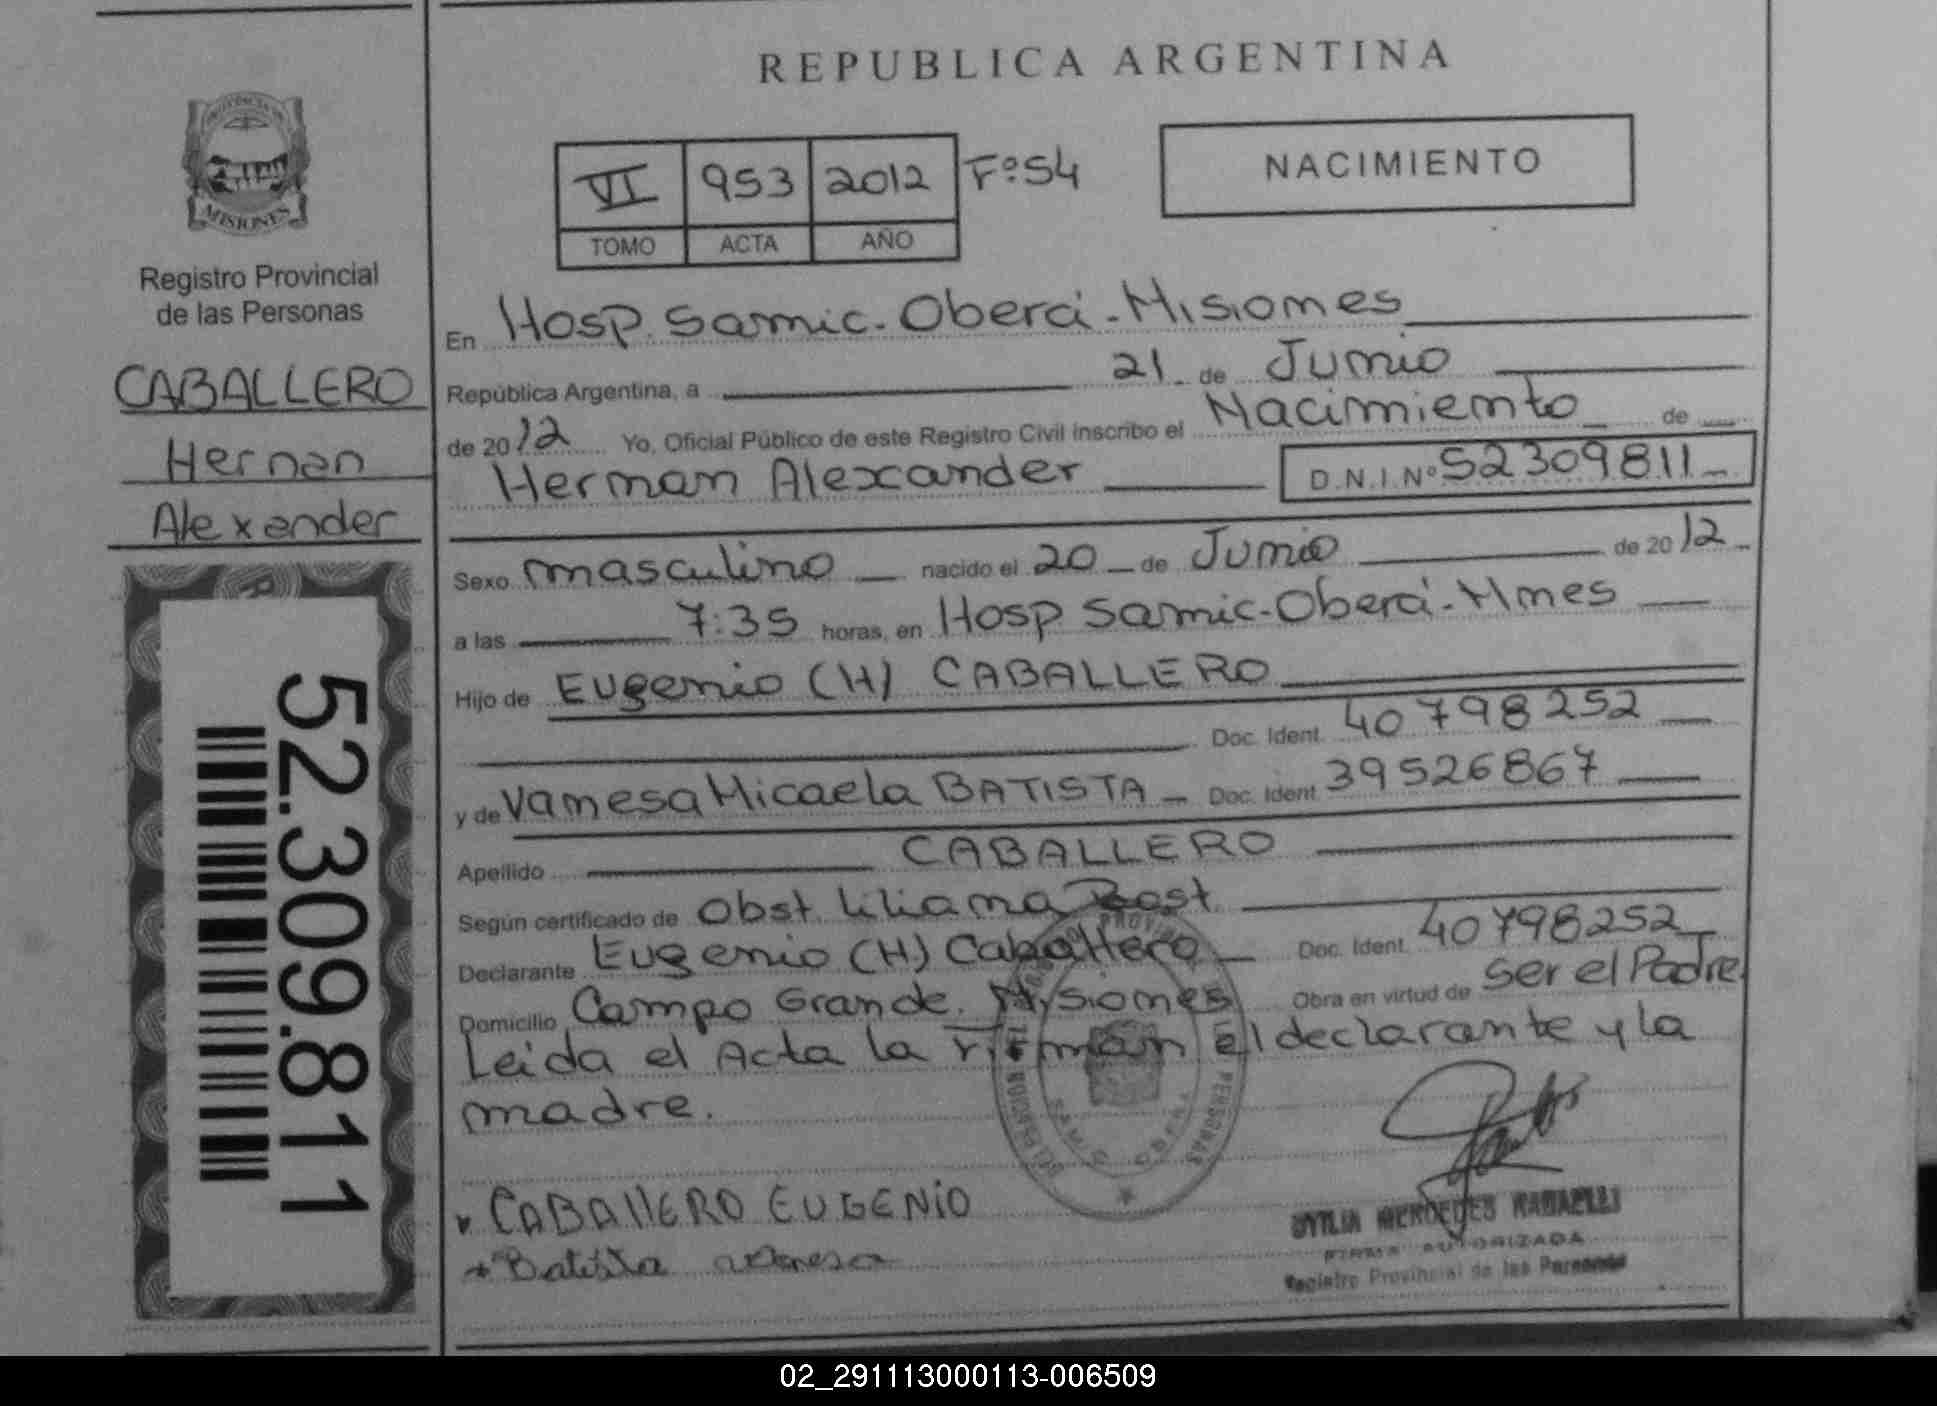 REPUBLICA ARGENTINA
PROVINCIA DE
MISIONES
Registro Provincial
de las Personas
CABALLERO
Hernan
Alexander
52.309.811
VI 953 2012 Fº 54
TOMO ACTA AÑO
NACIMIENTO
En Hosp. Samic. Oberá - Misiones
República Argentina, a 21 de Junio
de 2012 Yo, Oficial Público de este Registro Civil inscribo el Nacimiento de
Hernan Alexander D.N.I.Nº 52309811
Sexo masculino nacido el 20 de Junio de 2012
a las 7:35 horas, en Hosp Samic-Oberá-Mnes
Hijo de Eugenio (H) CABALLERO
Doc. Ident. 40798252
y de Vanesa Micaela BATISTA Doc. Ident. 39526867
Apellido CABALLERO
Según certificado de Obst. Liliana
Declarante Eugenio (H) Caballero Doc. Ident. 40798252
Domicilio Campo Grande. Misiones Obra en virtud de ser el Padre.
Leida el Acta la firman el declarante y la
madre.
CABAllERO EUGENiO
Batista
FIRMA AUTORIZADA
Registro Provincial de las Personas
02_291113000113-006509